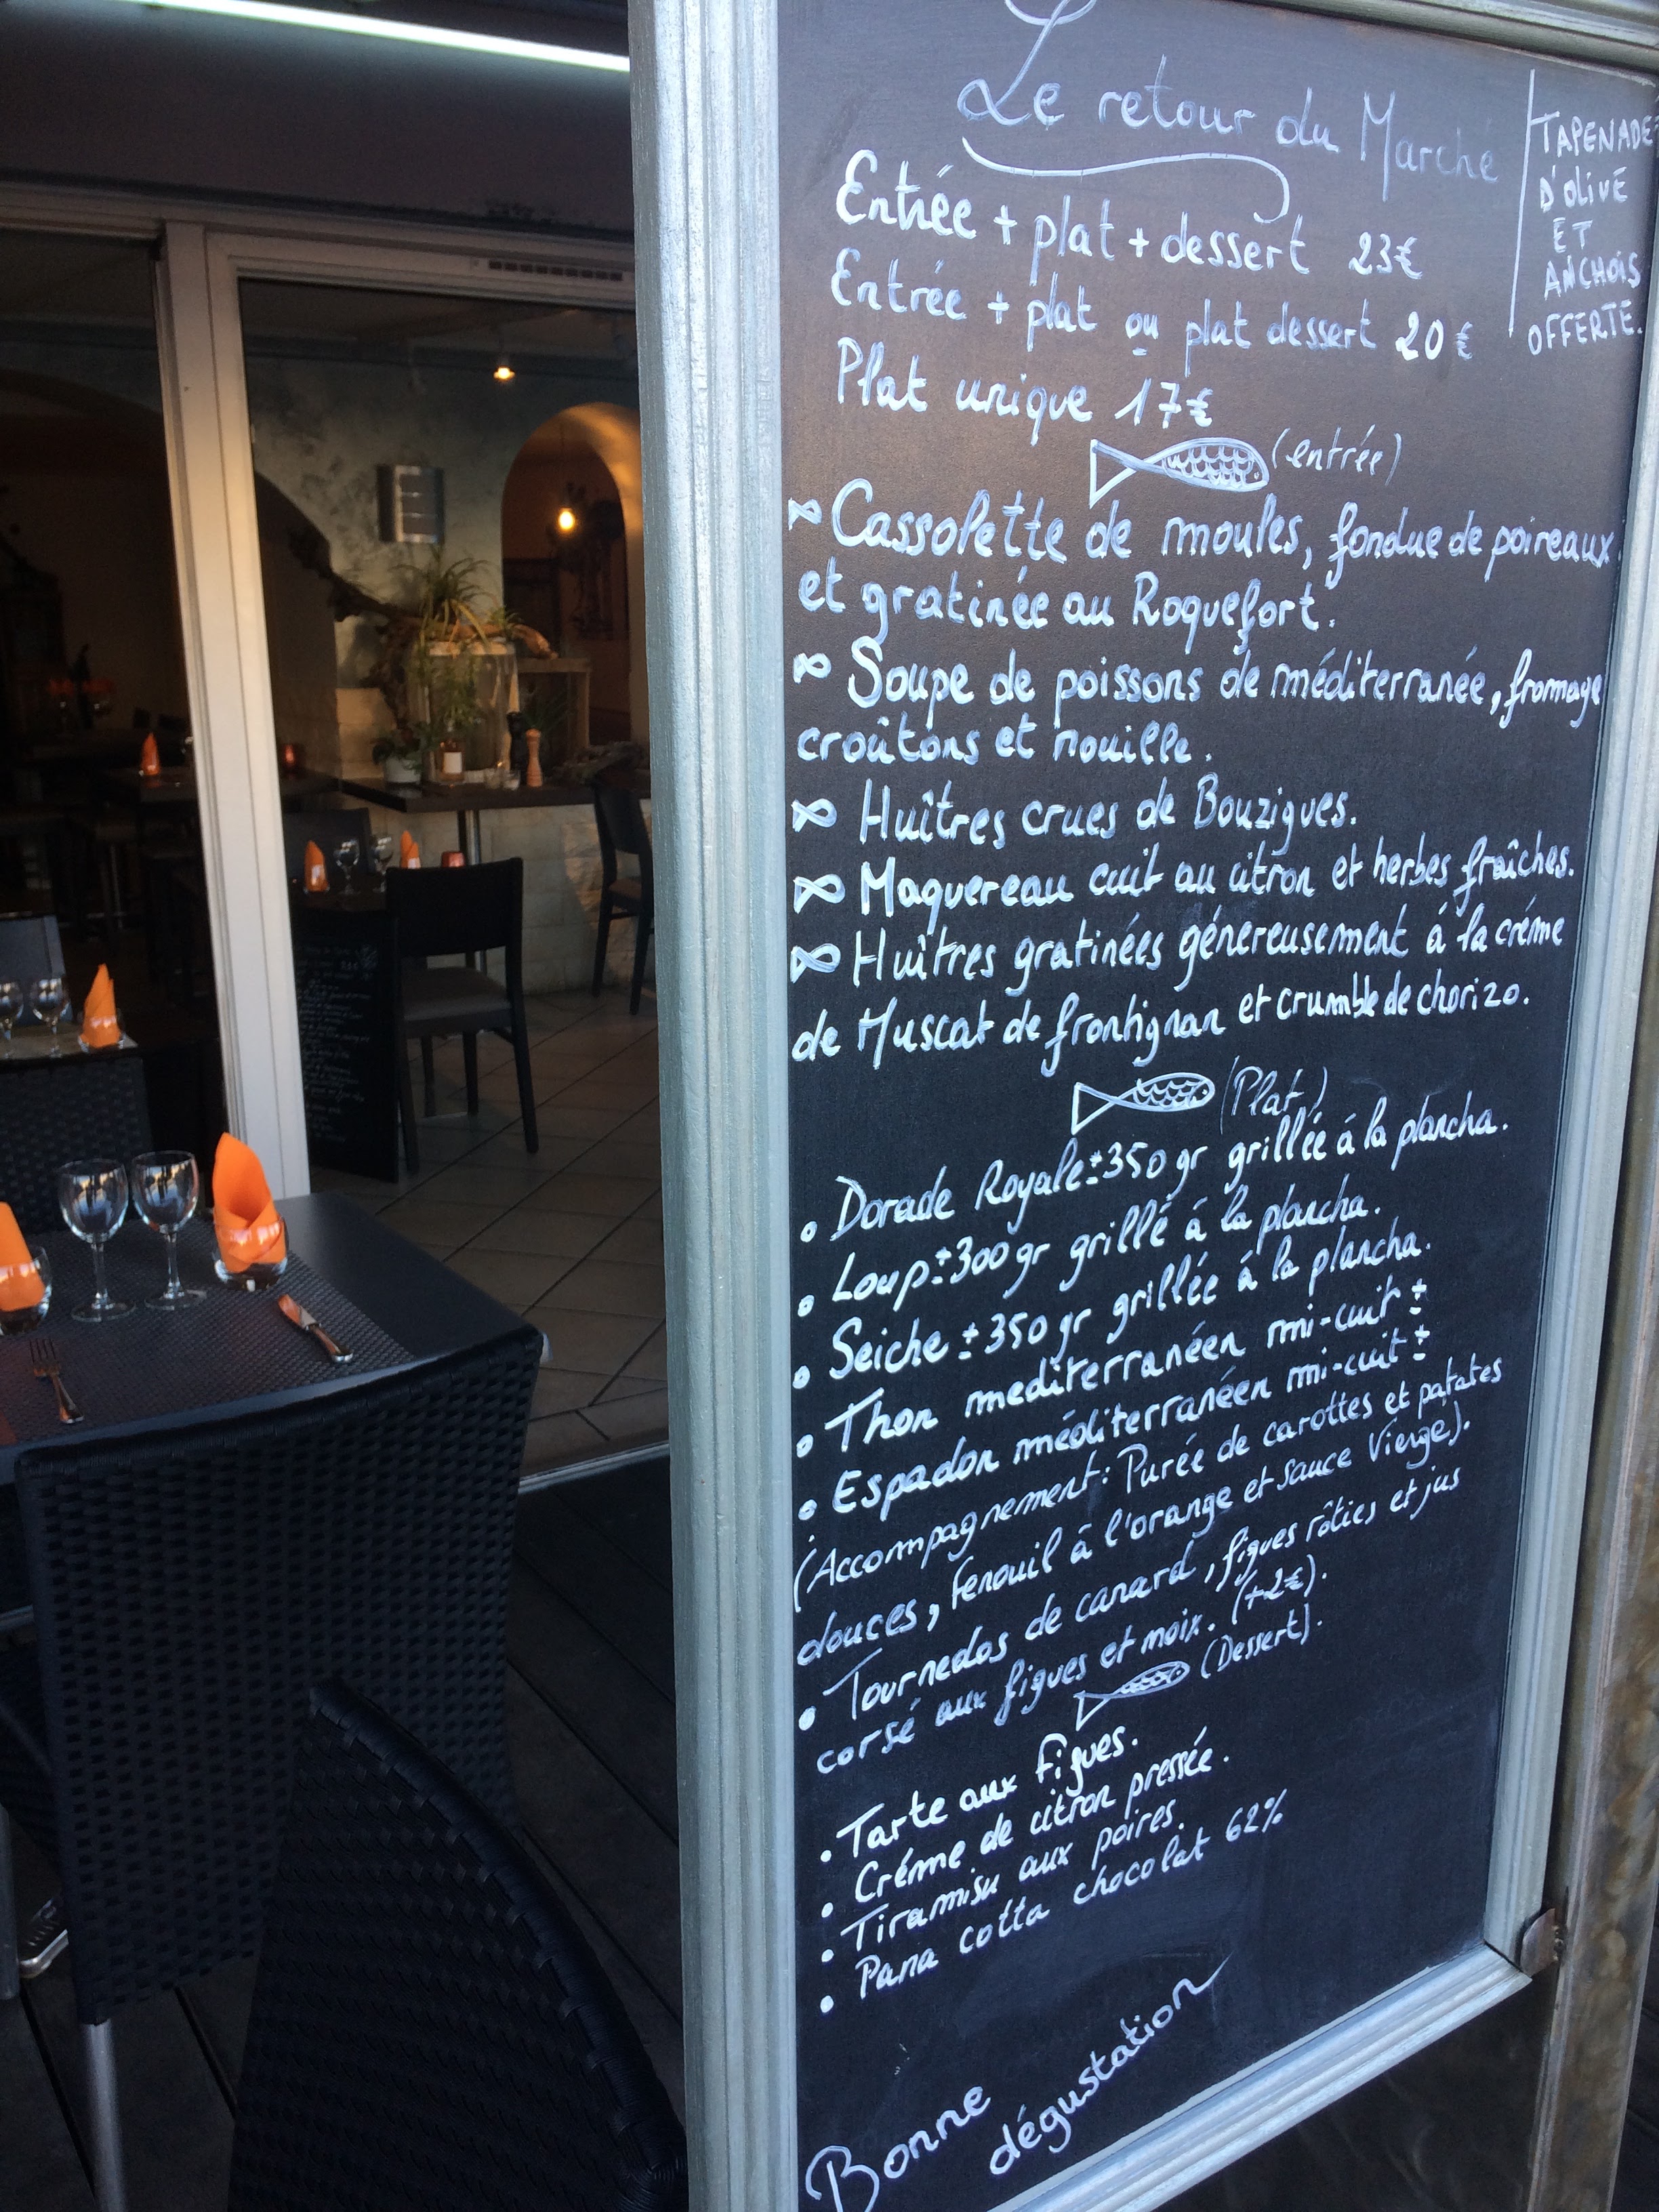 Le retour du Marché
TAPENADE
D'OLIVE
ET
ANCHOIS
OFFERTE.
Entrée + plat + dessert 23€
Entrée + plat ou plat dessert 20€
Plat unique 17€
(entrée)
Cassolette de moules, fondue de poireaux
et gratinée au Roquefort.
Soupe de poissons de méditerranée, fromage
croûtons et rouille.
Huîtres crues de Bouzigues.
Maquereau cuit au citron et herbes fraîches.
Huîtres gratinées génereusement á la créme
de Muscat de frontignan et crumble de chorizo.
(Plat)
• Dorade Royale ± 350 gr grillée á la plancha.
• Loup ± 300 gr grillé á la plancha.
• Seiche ± 350 gr grillée á la plancha.
• Thon mediterranéen mi-cuit ±
• Espadon méditerranéen mi-cuit ±
(Accompagnement: Purée de carottes et patates
douces, fenouil á l'orange et sauce Vierge).
• Tournedos de canard, figues rôties et jus
corsé aux figues et noix. (+2€).
(Dessert).
• Tarte aux figues.
• Créme de citron pressée.
• Tiramisu aux poires.
• Pana cotta chocolat 62%
Bonne
dégustation